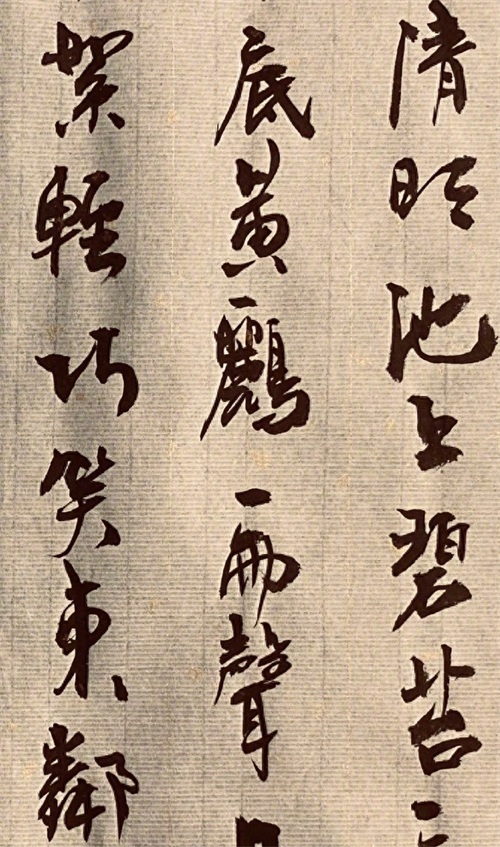 清明池上碧苔
底黃鸝一兩聲
絮輕巧笑東鄰